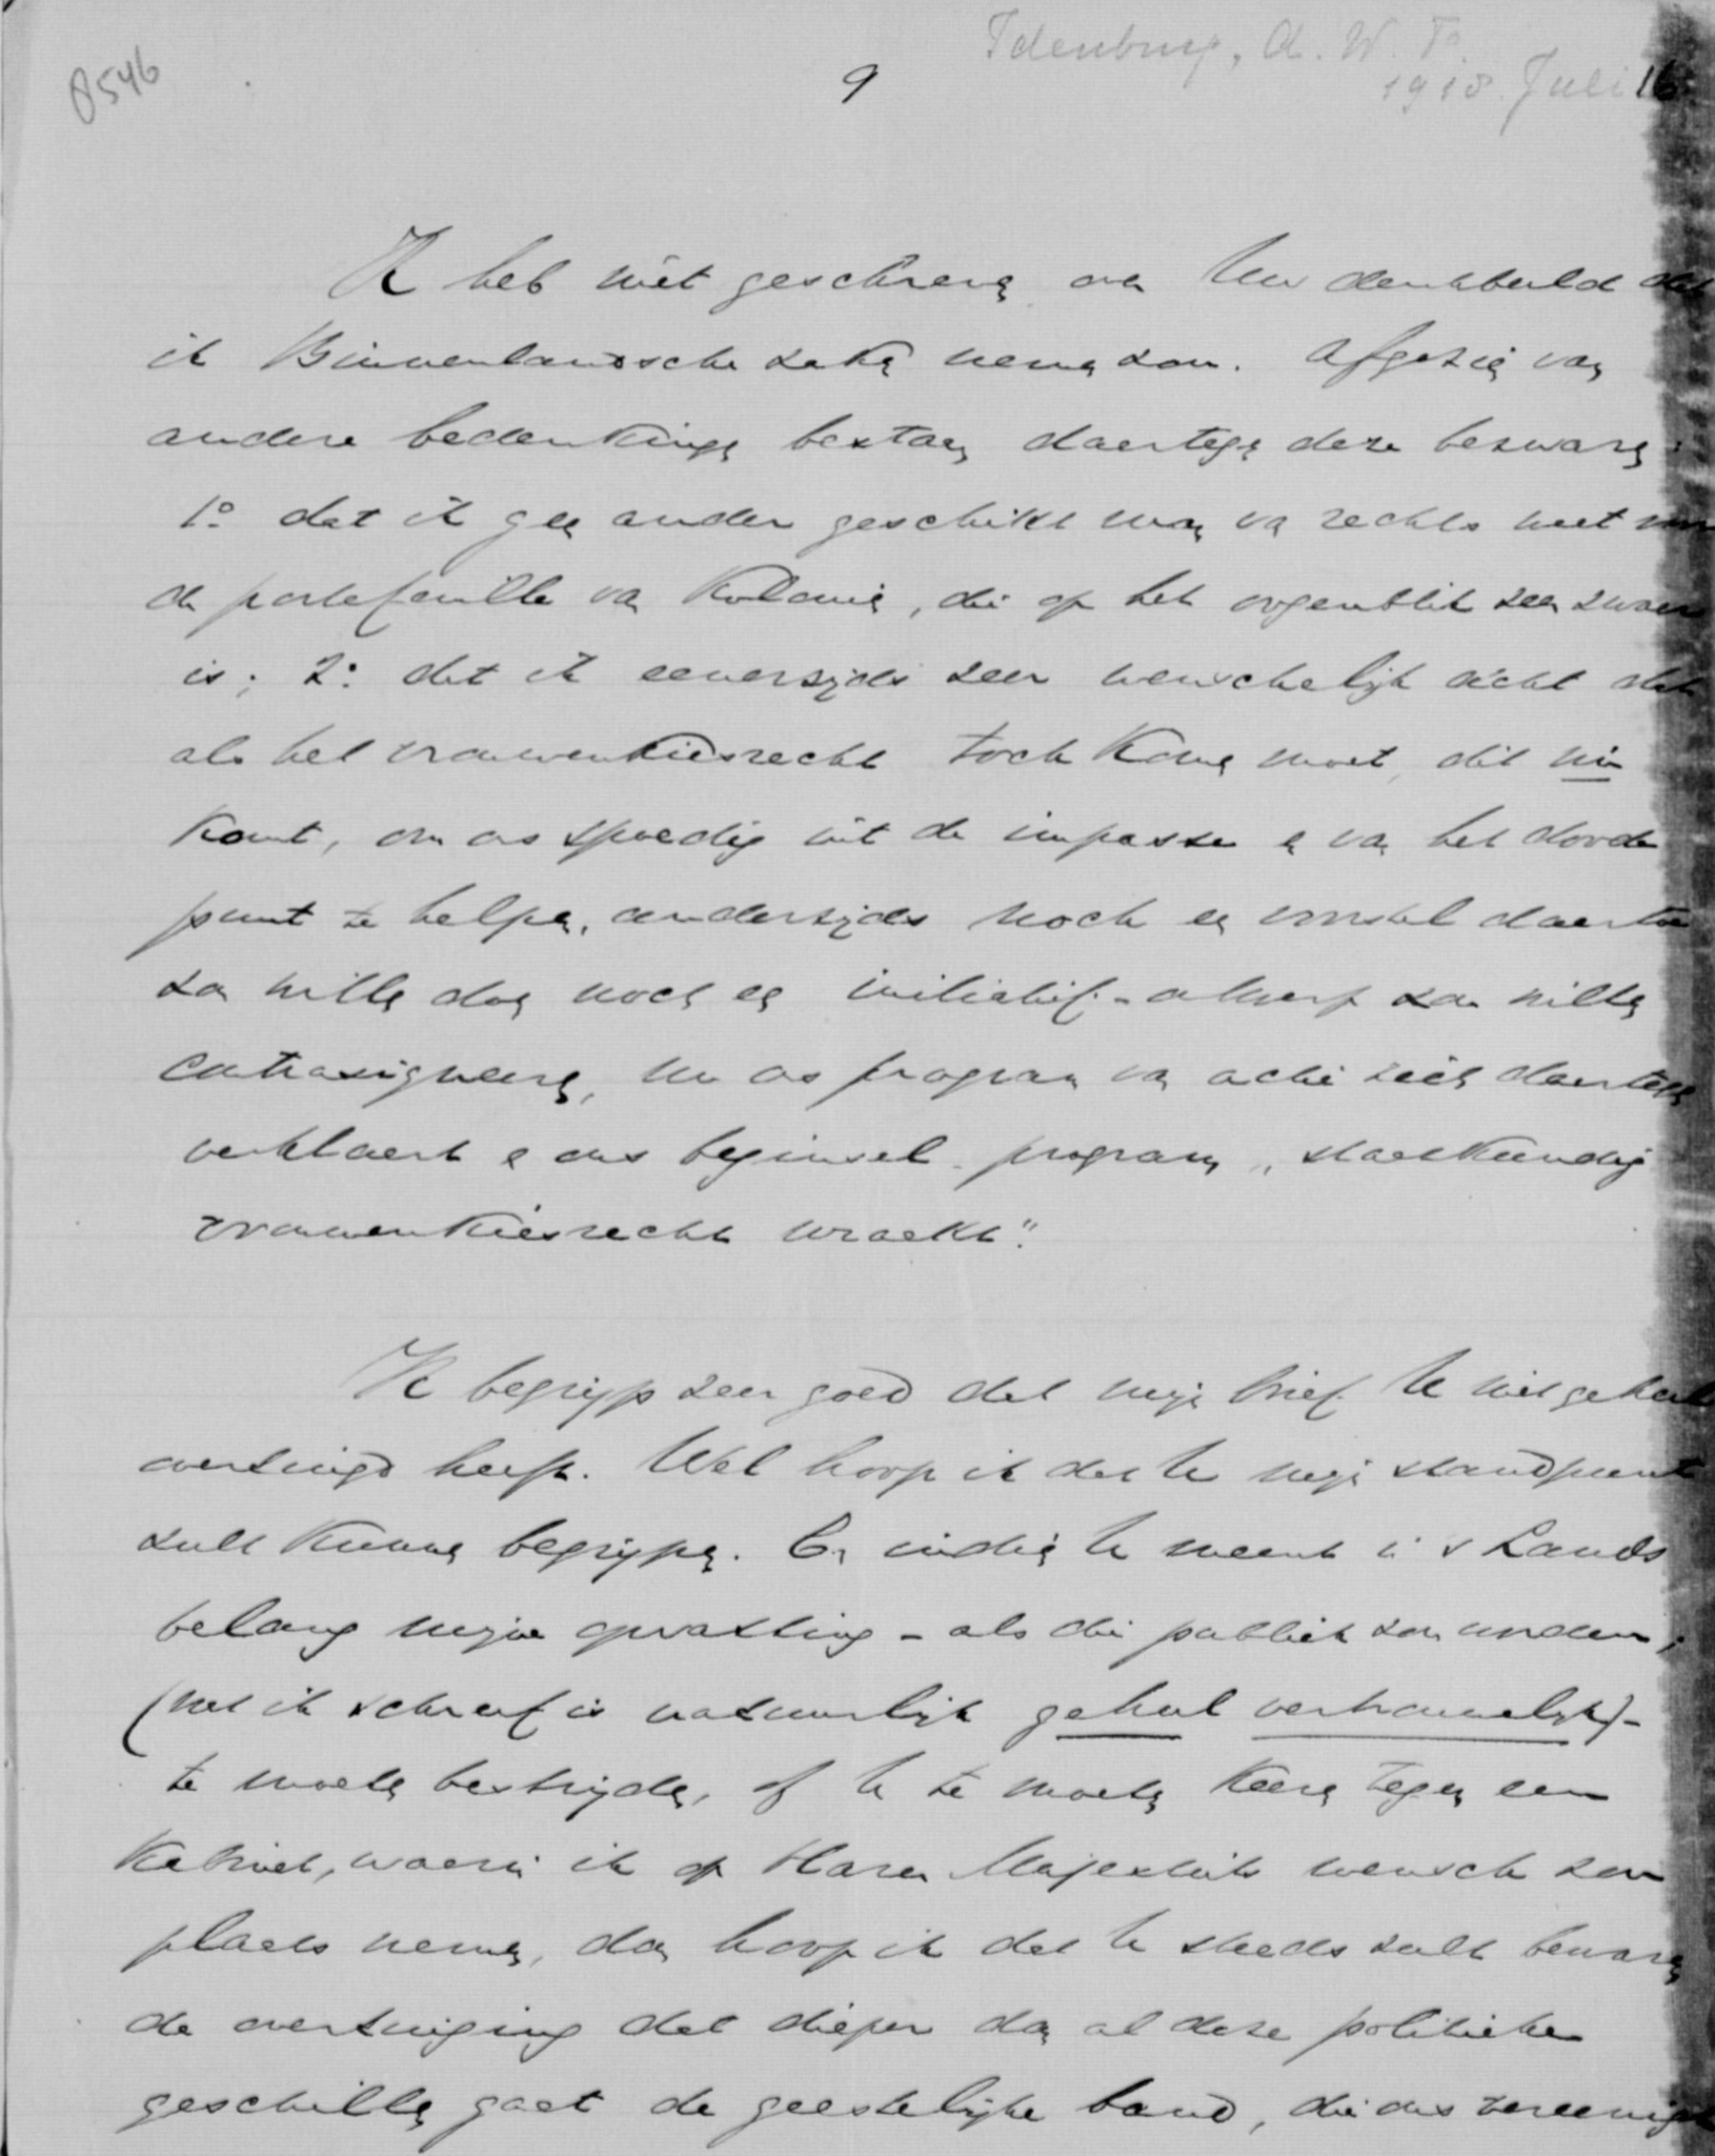 Idenburg, A. W. F.
8546
9
1918. Juli 16
Ik heb niet geschreven over Uw denkbeeld dat
ik Binnenlandsche Zaken nemen zou. Afgezien van
andere bedenkingen bestaan daartegen deze bezwaren:
1º dat ik geen ander geschikt man van rechts weet voor
de portefeuille van Koloniën, die op het oogenblik zeer zwaar
is; 2º dat ik eenerzijds zeer wenschelijk acht dat
als het vrouwenkiesrecht toch komen moet, dit nu
komt, om ons spoedig uit de impasse en van het doode
punt te helpen, anderzijds noch een voorstel daartoe
zou willen doen noch een initiatief-ontwerp zou willen
contrasigneeren, nu ons program van actie zich daartegen
verklaart en ons beginsel-program "staatkundig
vrouwenkiesrecht wraakt".
Ik begrijp zeer goed dat mijn brief U niet geheel
overtuigd heeft. Wel hoop ik dat U mijn standpunt
zult kunnen begrijpen. En indien U meent in 's Lands
belang mijne opvatting - als die publiek zou worden,
(wat ik schreef is natuurlijk geheel vertrouwelijk) -
te moeten bestrijden, of U te moeten keeren tegen een
Kabinet, waarin ik op Harer Majesteits wensch zou
plaats nemen, dan hoop ik dat U steeds zult bewaren
de overtuiging dat dieper dan al deze politieke
geschillen gaat de geestelijke band, die ons vereenigt